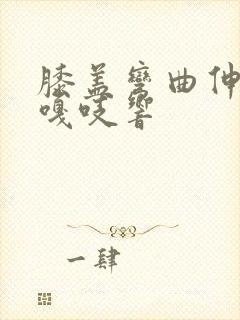 膝盖弯曲伸
嘎吱响
一肆